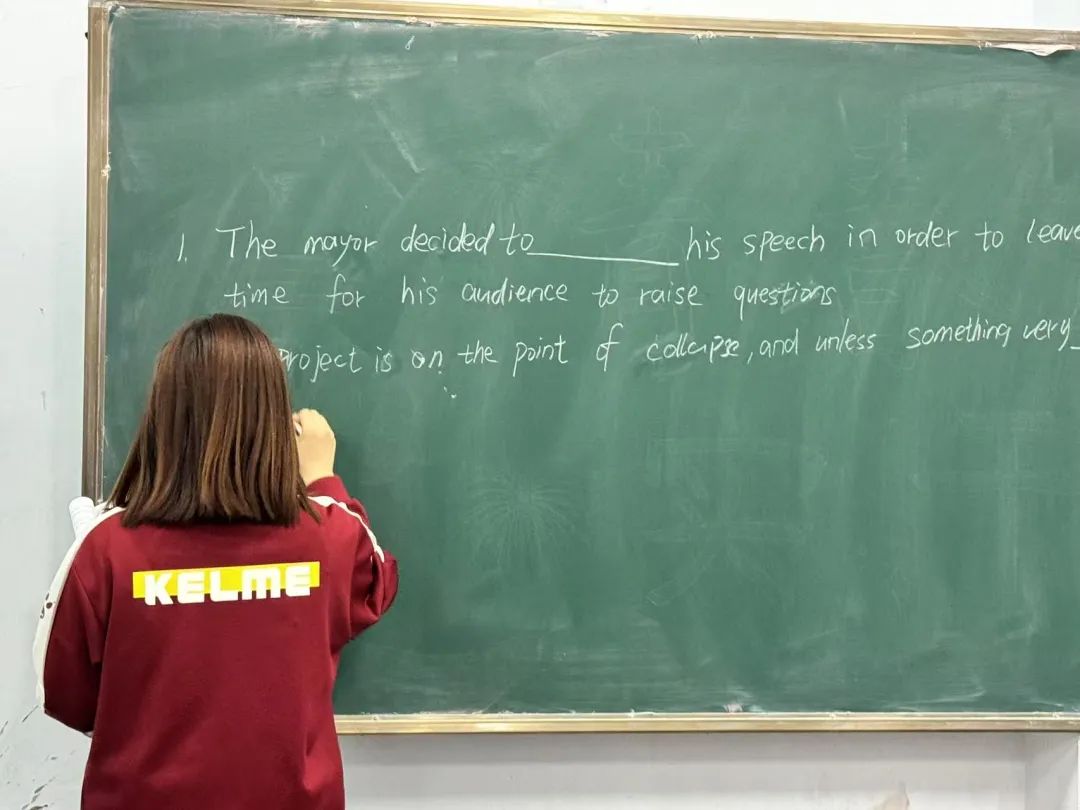 1. The mayor decided to________his speech in order to leave
time for his audience to raise questions
project is on the point of collapse, and unless something very_
KELME